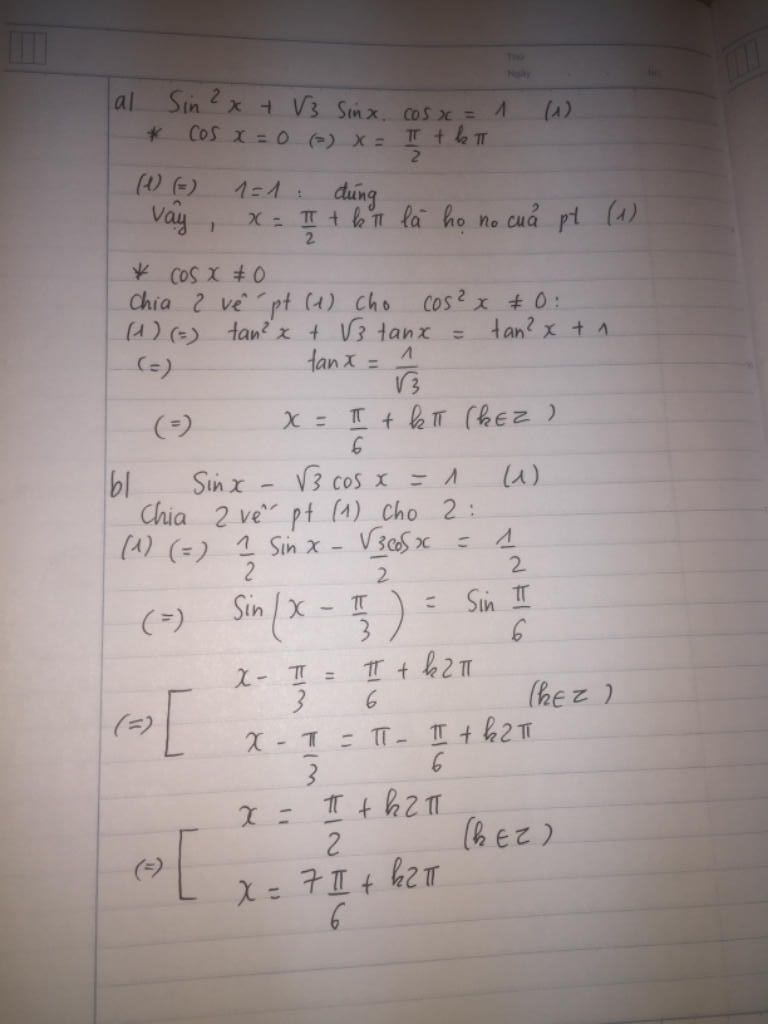 Thứ
Ngày No.
a) Sin²x + √3 Sinx. cosx = 1 (1)
* cos x = 0 (=) x = π/2 + kπ
(1) (=) 1=1 : đúng
Vậy, x = π/2 + kπ là họ no cuả pt (1)
* cos x ≠ 0
Chia 2 vế pt (1) cho cos²x ≠ 0 :
(1) (=) tan²x + √3 tanx = tan²x + 1
(=) tanx = 1/√3
(=) x = π/6 + kπ (k∈Z)
b) Sinx - √3 cos x = 1 (1)
Chia 2 vế pt (1) cho 2 :
(1) (=) 1/2 Sinx - √3cosx/2 = 1/2
(=) Sin(x - π/3) = Sin π/6
(=) [ x - π/3 = π/6 + k2π
(k∈Z)
x - π/3 = π - π/6 + k2π
(=) [ x = π/2 + k2π
(k∈Z)
x = 7π/6 + k2π